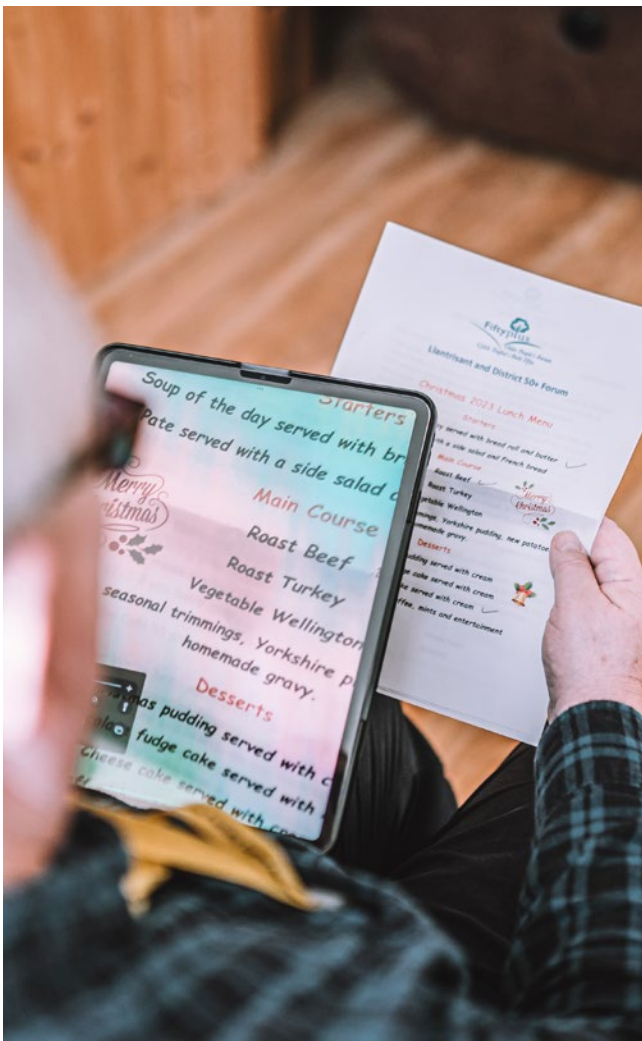 Starters
Soup of the day served with br
Pate served with a side salad
Merry
Christmas
Main Course
Roast Beef
Roast Turkey
Vegetable Wellington
seasonal trimmings, Yorkshire p
homemade gravy.
Desserts
mas pudding served with c
fudge cake served with
Cheese cake served with
Fiftyplus
Llantrisant and District 50+ Forum
Christmas 2023 Lunch Menu
Starters
served with bread roll and butter
with a side salad and French bread
Main Course
Roast Beef
Roast Turkey
etable Wellington
mings, Yorkshire pudding, new potatoe
memade gravy.
Merry
Christmas
Desserts
udding served with cream
ge cake served with cream
ke served with cream
offee, mints and entertainment